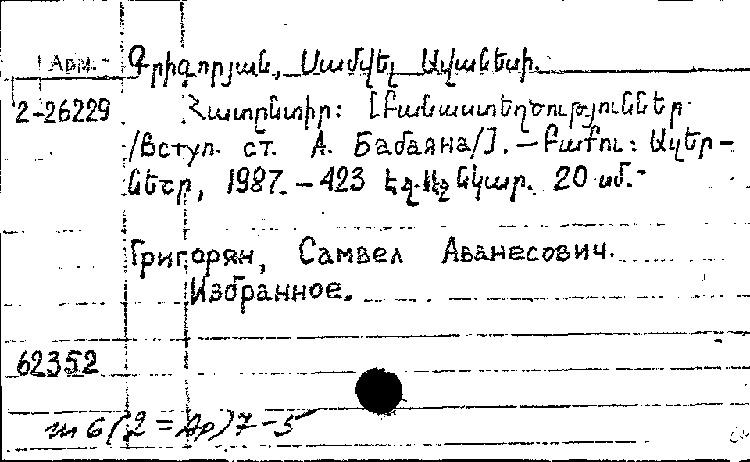 Арм. Գրիգորյան, Սամվել Ավանեսի.
2-26229 Հատընտիր: [Բանաստեղծություններ
/Вступ. ст. А. Бабаяна/]. – Բաքու: Ազեր-
նեշր, 1987. – 423 էջ նկար. 20 սմ. -
Григорян, Самвел Аванесович.
Избранное.
62352
ш 6(2=Ар)7-5